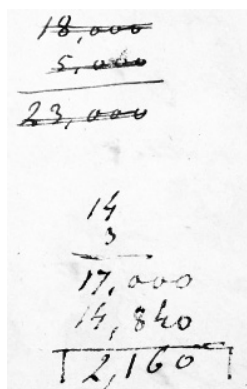 18,000
5,000
23,000
14
3
17,000
14,840
2,160